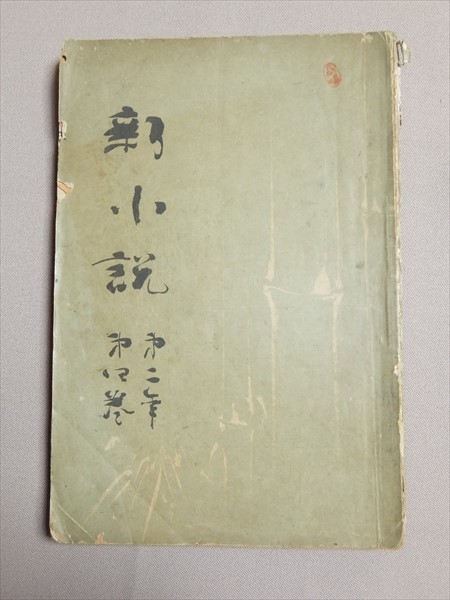 新小説
第二年
第四巻